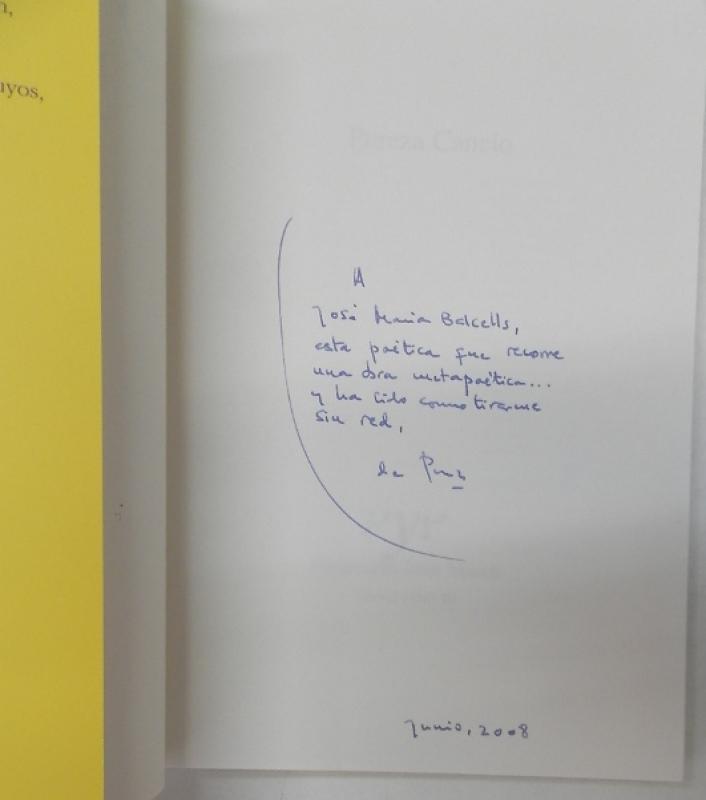 n,
uyos,
A
José María Balcells,
esta poética que recorre
una obra metapoética...
y ha sido como tirarme
sin red,
de
Junio, 2008